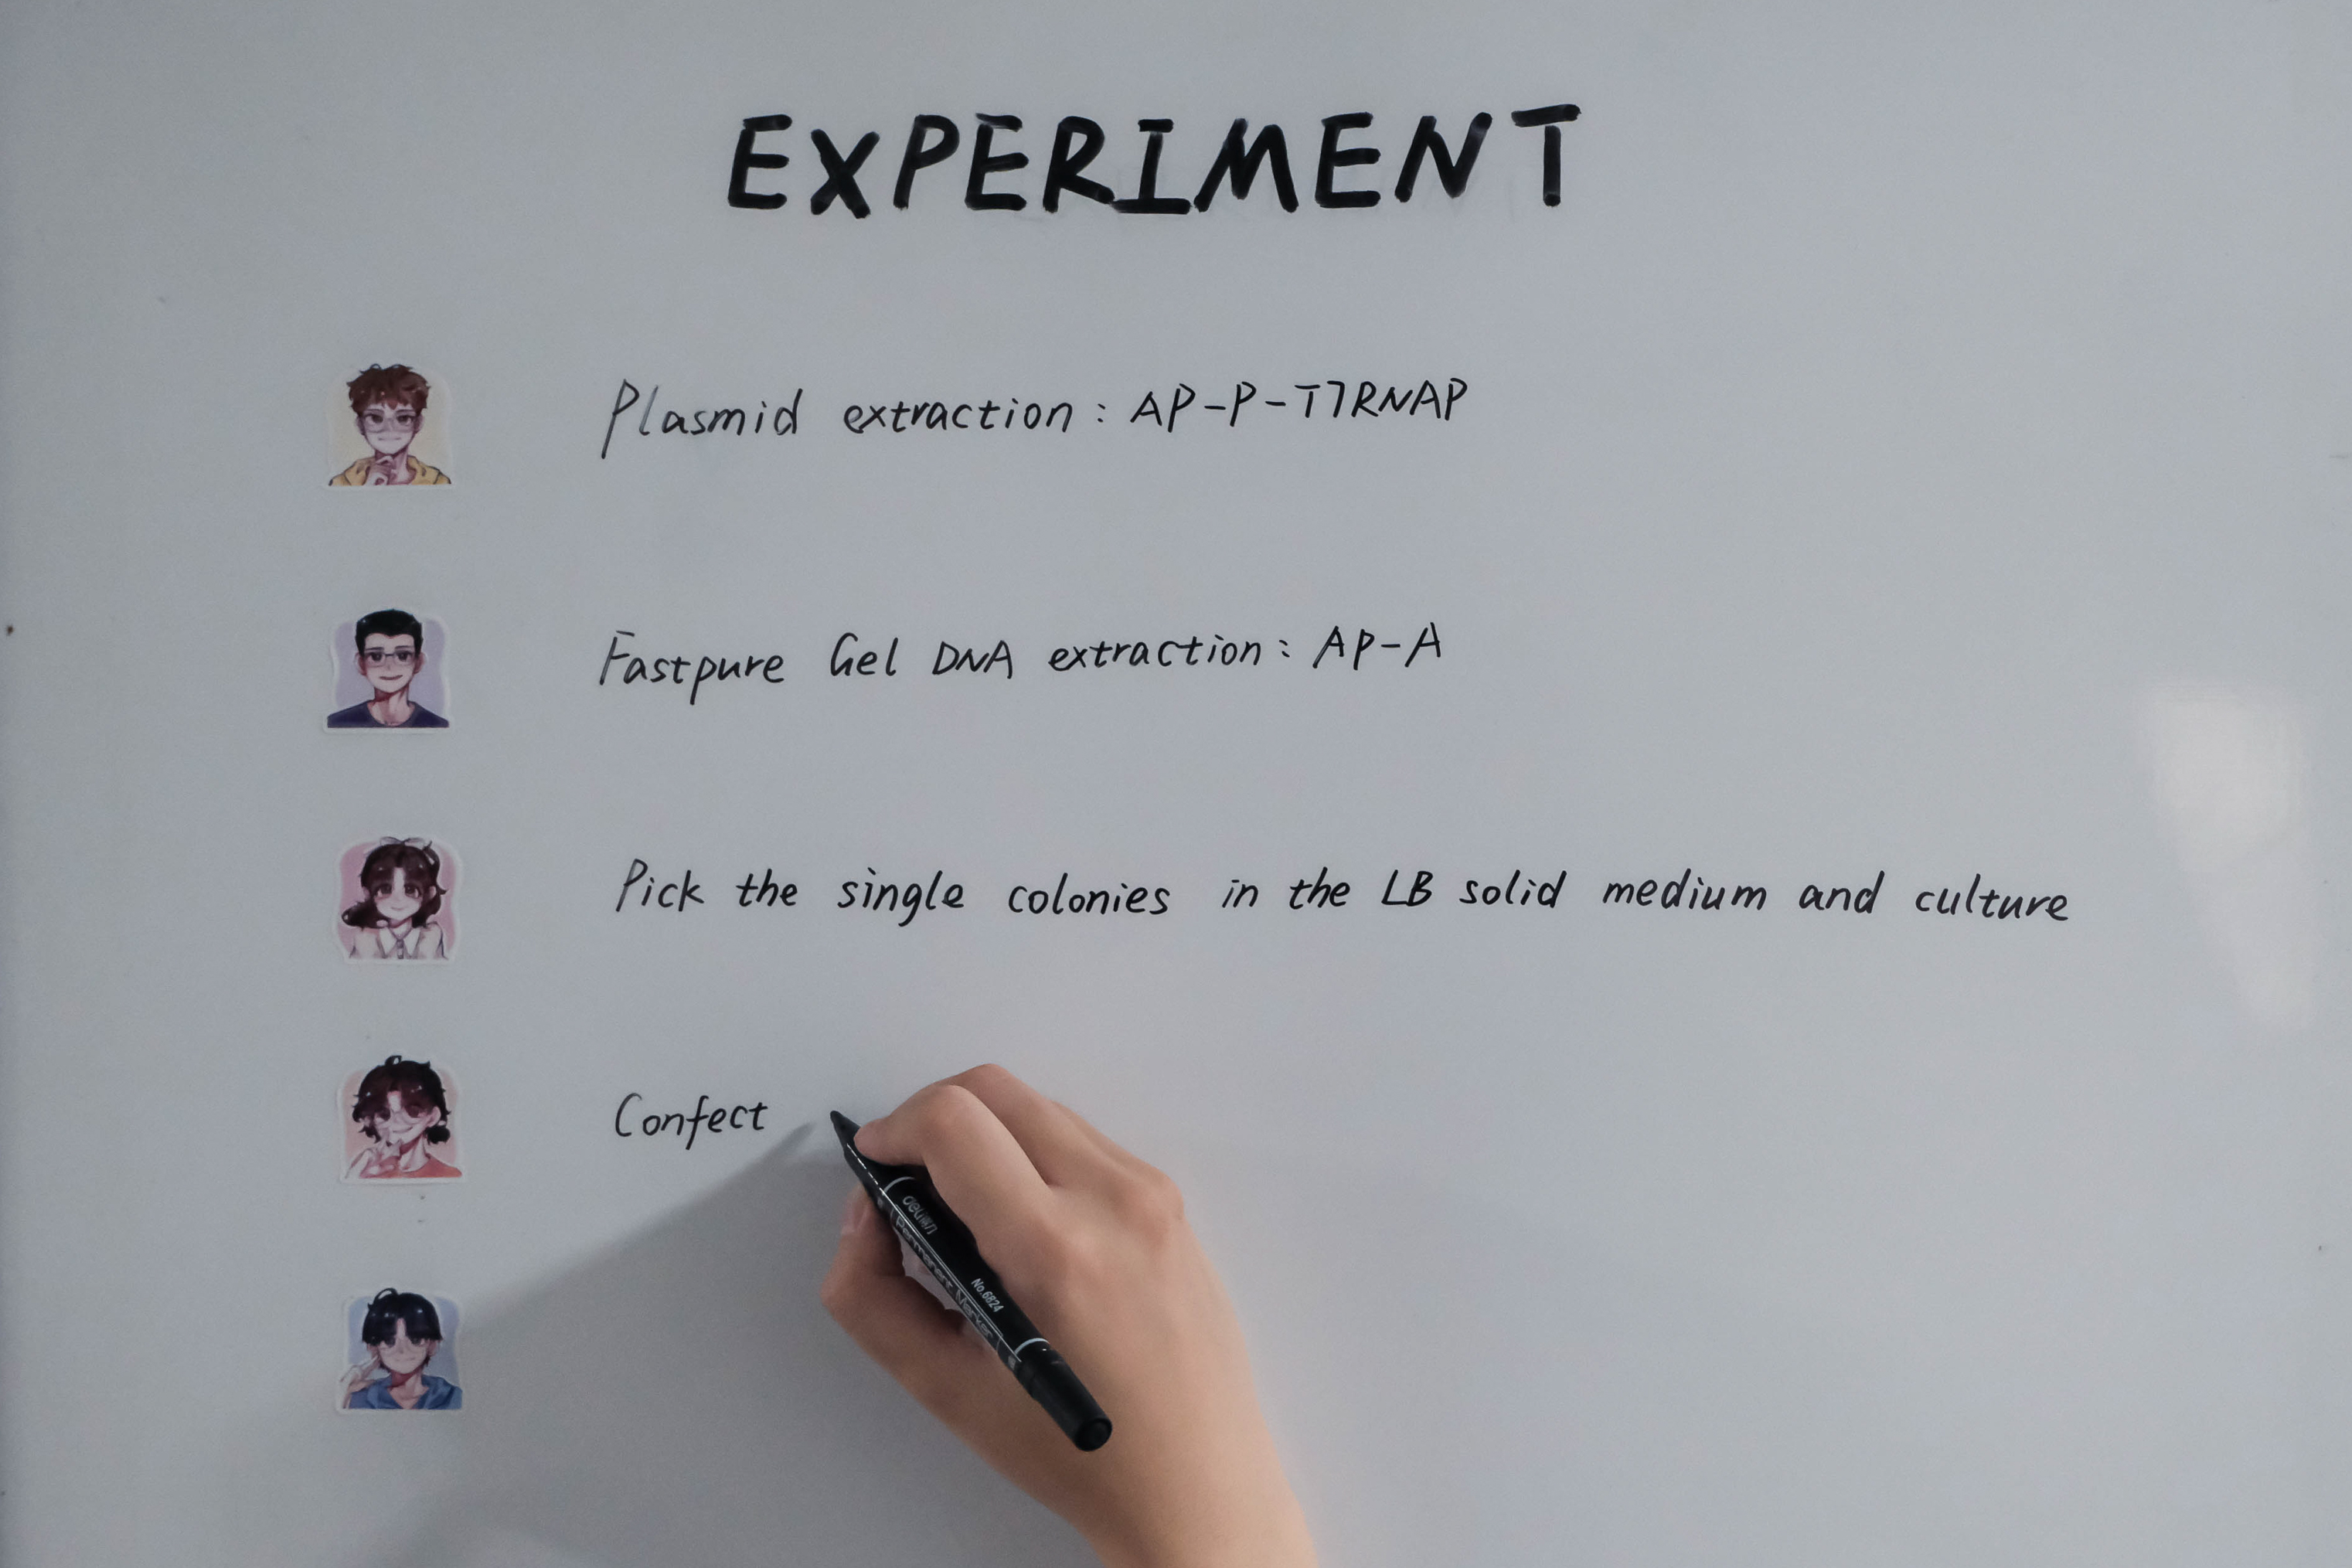 EXPERIMENT
Plasmid extraction: AP-P-T7RNAP
Fastpure Gel DNA extraction: AP-A
Pick the single colonies in the LB solid medium and culture
Confect
deli
Permanent Marker
No.6824